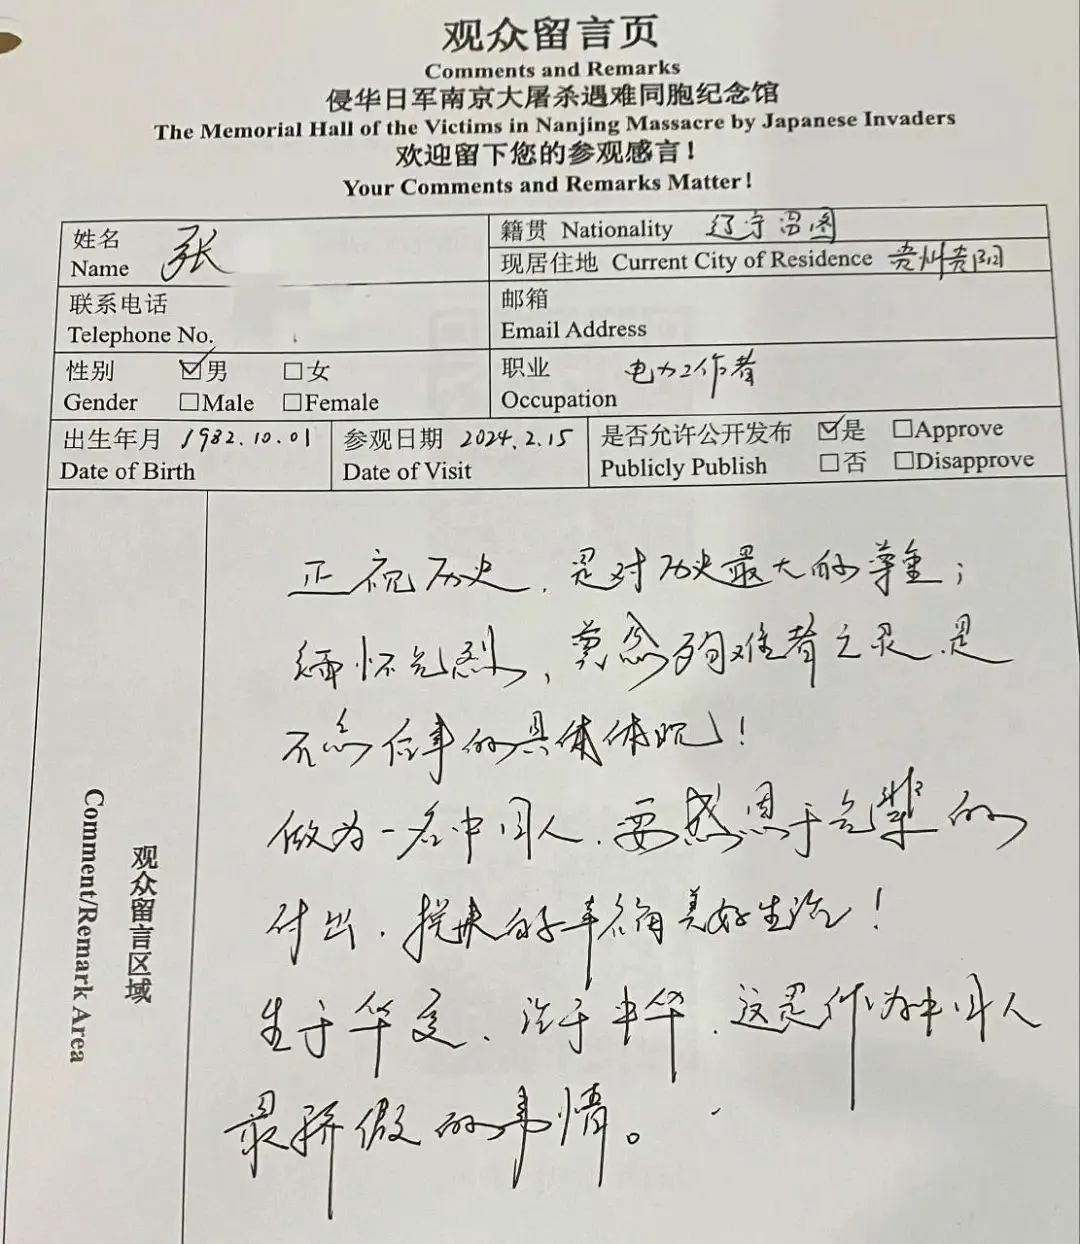 观众留言页
Comments and Remarks
侵华日军南京大屠杀遇难同胞纪念馆
The Memorial Hall of the Victims in Nanjing Massacre by Japanese Invaders
欢迎留下您的参观感言！
Your Comments and Remarks Matter！
姓名 张
Name
籍贯 Nationality 辽宁昌图
现居住地 Current City of Residence 贵州贵阳
联系电话
Telephone No.
邮箱
Email Address
性别 ☑男 □女
Gender □Male □Female
职业 电力工作者
Occupation
出生年月 1982.10.01
Date of Birth
参观日期 2024.2.15
Date of Visit
是否允许公开发布 ☑是 □Approve
Publicly Publish □否 □Disapprove
观众留言区域
Comment/Remark Area
正视历史，是对历史最大的尊重；
缅怀先烈，奠念殉难者之灵，是
不忘往事的具体体现！
做为一名中国人，要感恩于先辈的
付出，换来的幸福美好生活！
生于华夏、活于中华，这是作为中国人
最骄傲的事情。